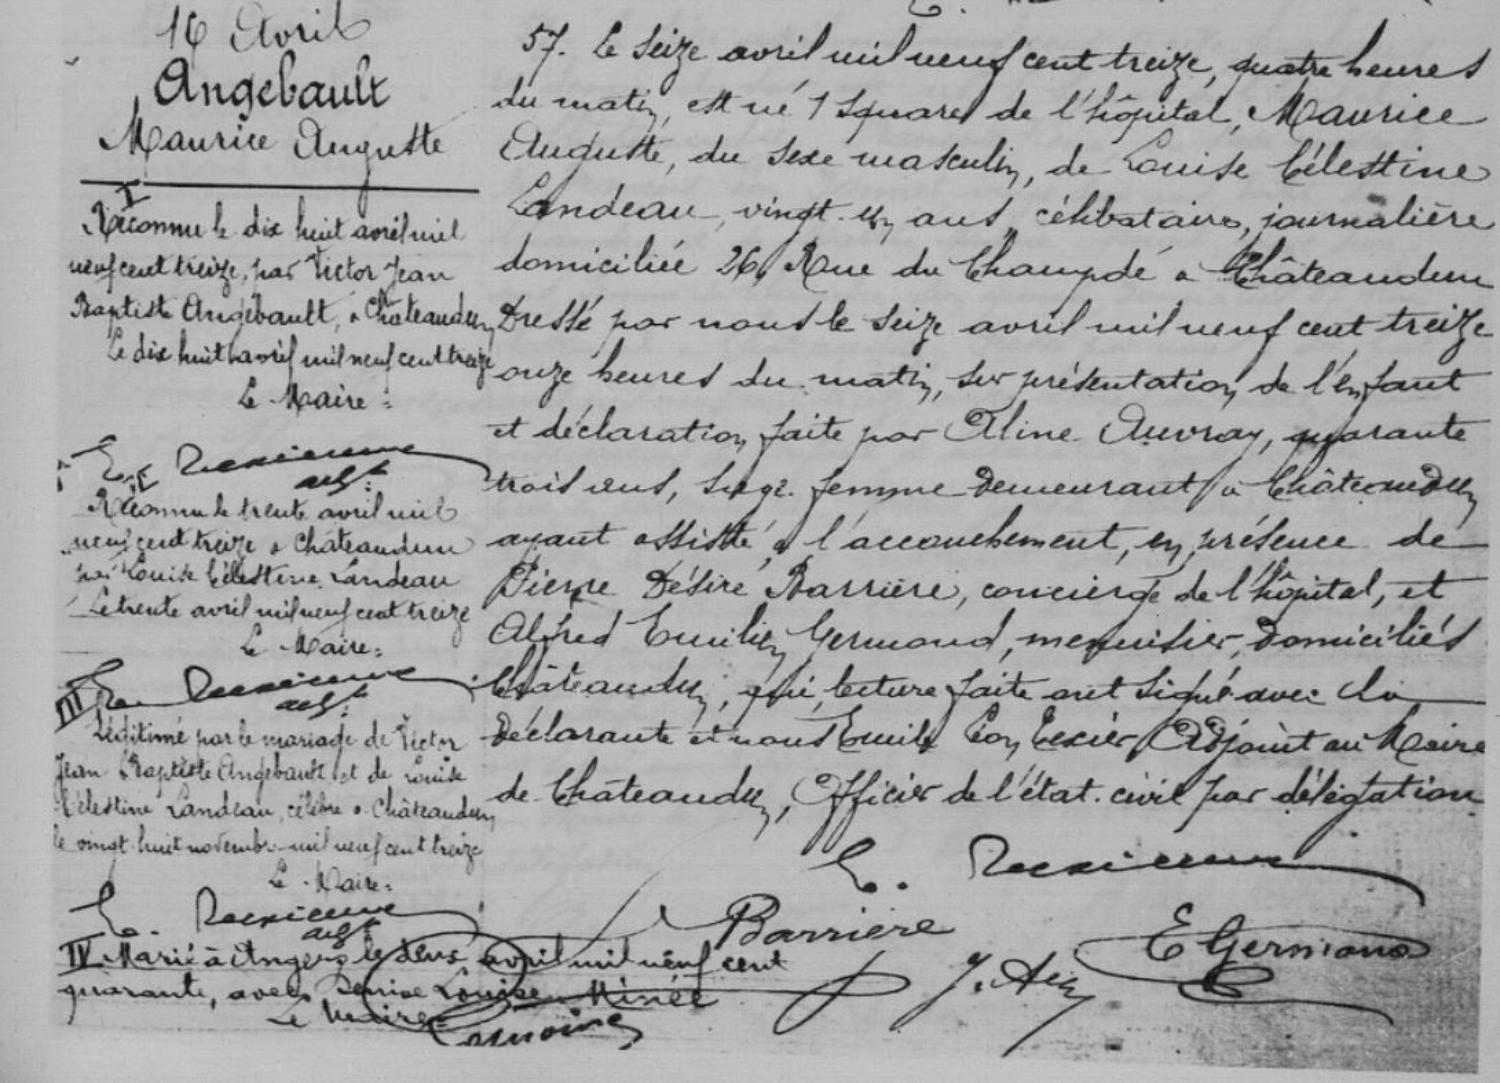 16 Avril
Angebault
Maurice Auguste
I
Reconnu le dix huit avril mil
neuf cent treize, par Victor Jean
Baptiste Angebault, à Châteaudun
Le dix huit avril mil neuf cent treize
Le Maire:
II
Reconnu le trente avril mil
neuf cent treize à Châteaudun
par Louise Célestine Landeau
Le trente avril mil neuf cent treize
Le Maire:
III
Légitimé par le mariage de Victor
Jean Baptiste Angebault et de Louise
Célestine Landeau, célébré à Châteaudun
le vingt huit novembre mil neuf cent treize
Le Maire:
IV Marié à Angers le deux avril mil neuf cent
quarante, avec Denise Louise Minée
Le Maire:
57. Le seize avril mil neuf cent treize, quatre heures
du matin, est né 1 Square de l'hôpital, Maurice
Auguste, du sexe masculin, de Louise Célestine
Landeau, vingt un ans, célibataire, journalière
domiciliée 26, Rue du Champdé à Châteaudun
Dressé par nous le seize avril mil neuf cent treize
onze heures du matin, sur présentation de l'enfant
et déclaration faite par Aline Auvray, quarante
trois ans, sage femme demeurant à Châteaudun
ayant assisté à l'accouchement, en présence de
Pierre Désiré Barrière, concierge de l'hôpital, et
Alfred Emilien Germond, menuisier, domiciliés
Châteaudun, qui, lecture faite ont signé avec la
Déclarante et nous Emile Léon Texier Adjoint au Maire
de Châteaudun, Officier de l'état civil par délégation
Barrière
E Germond